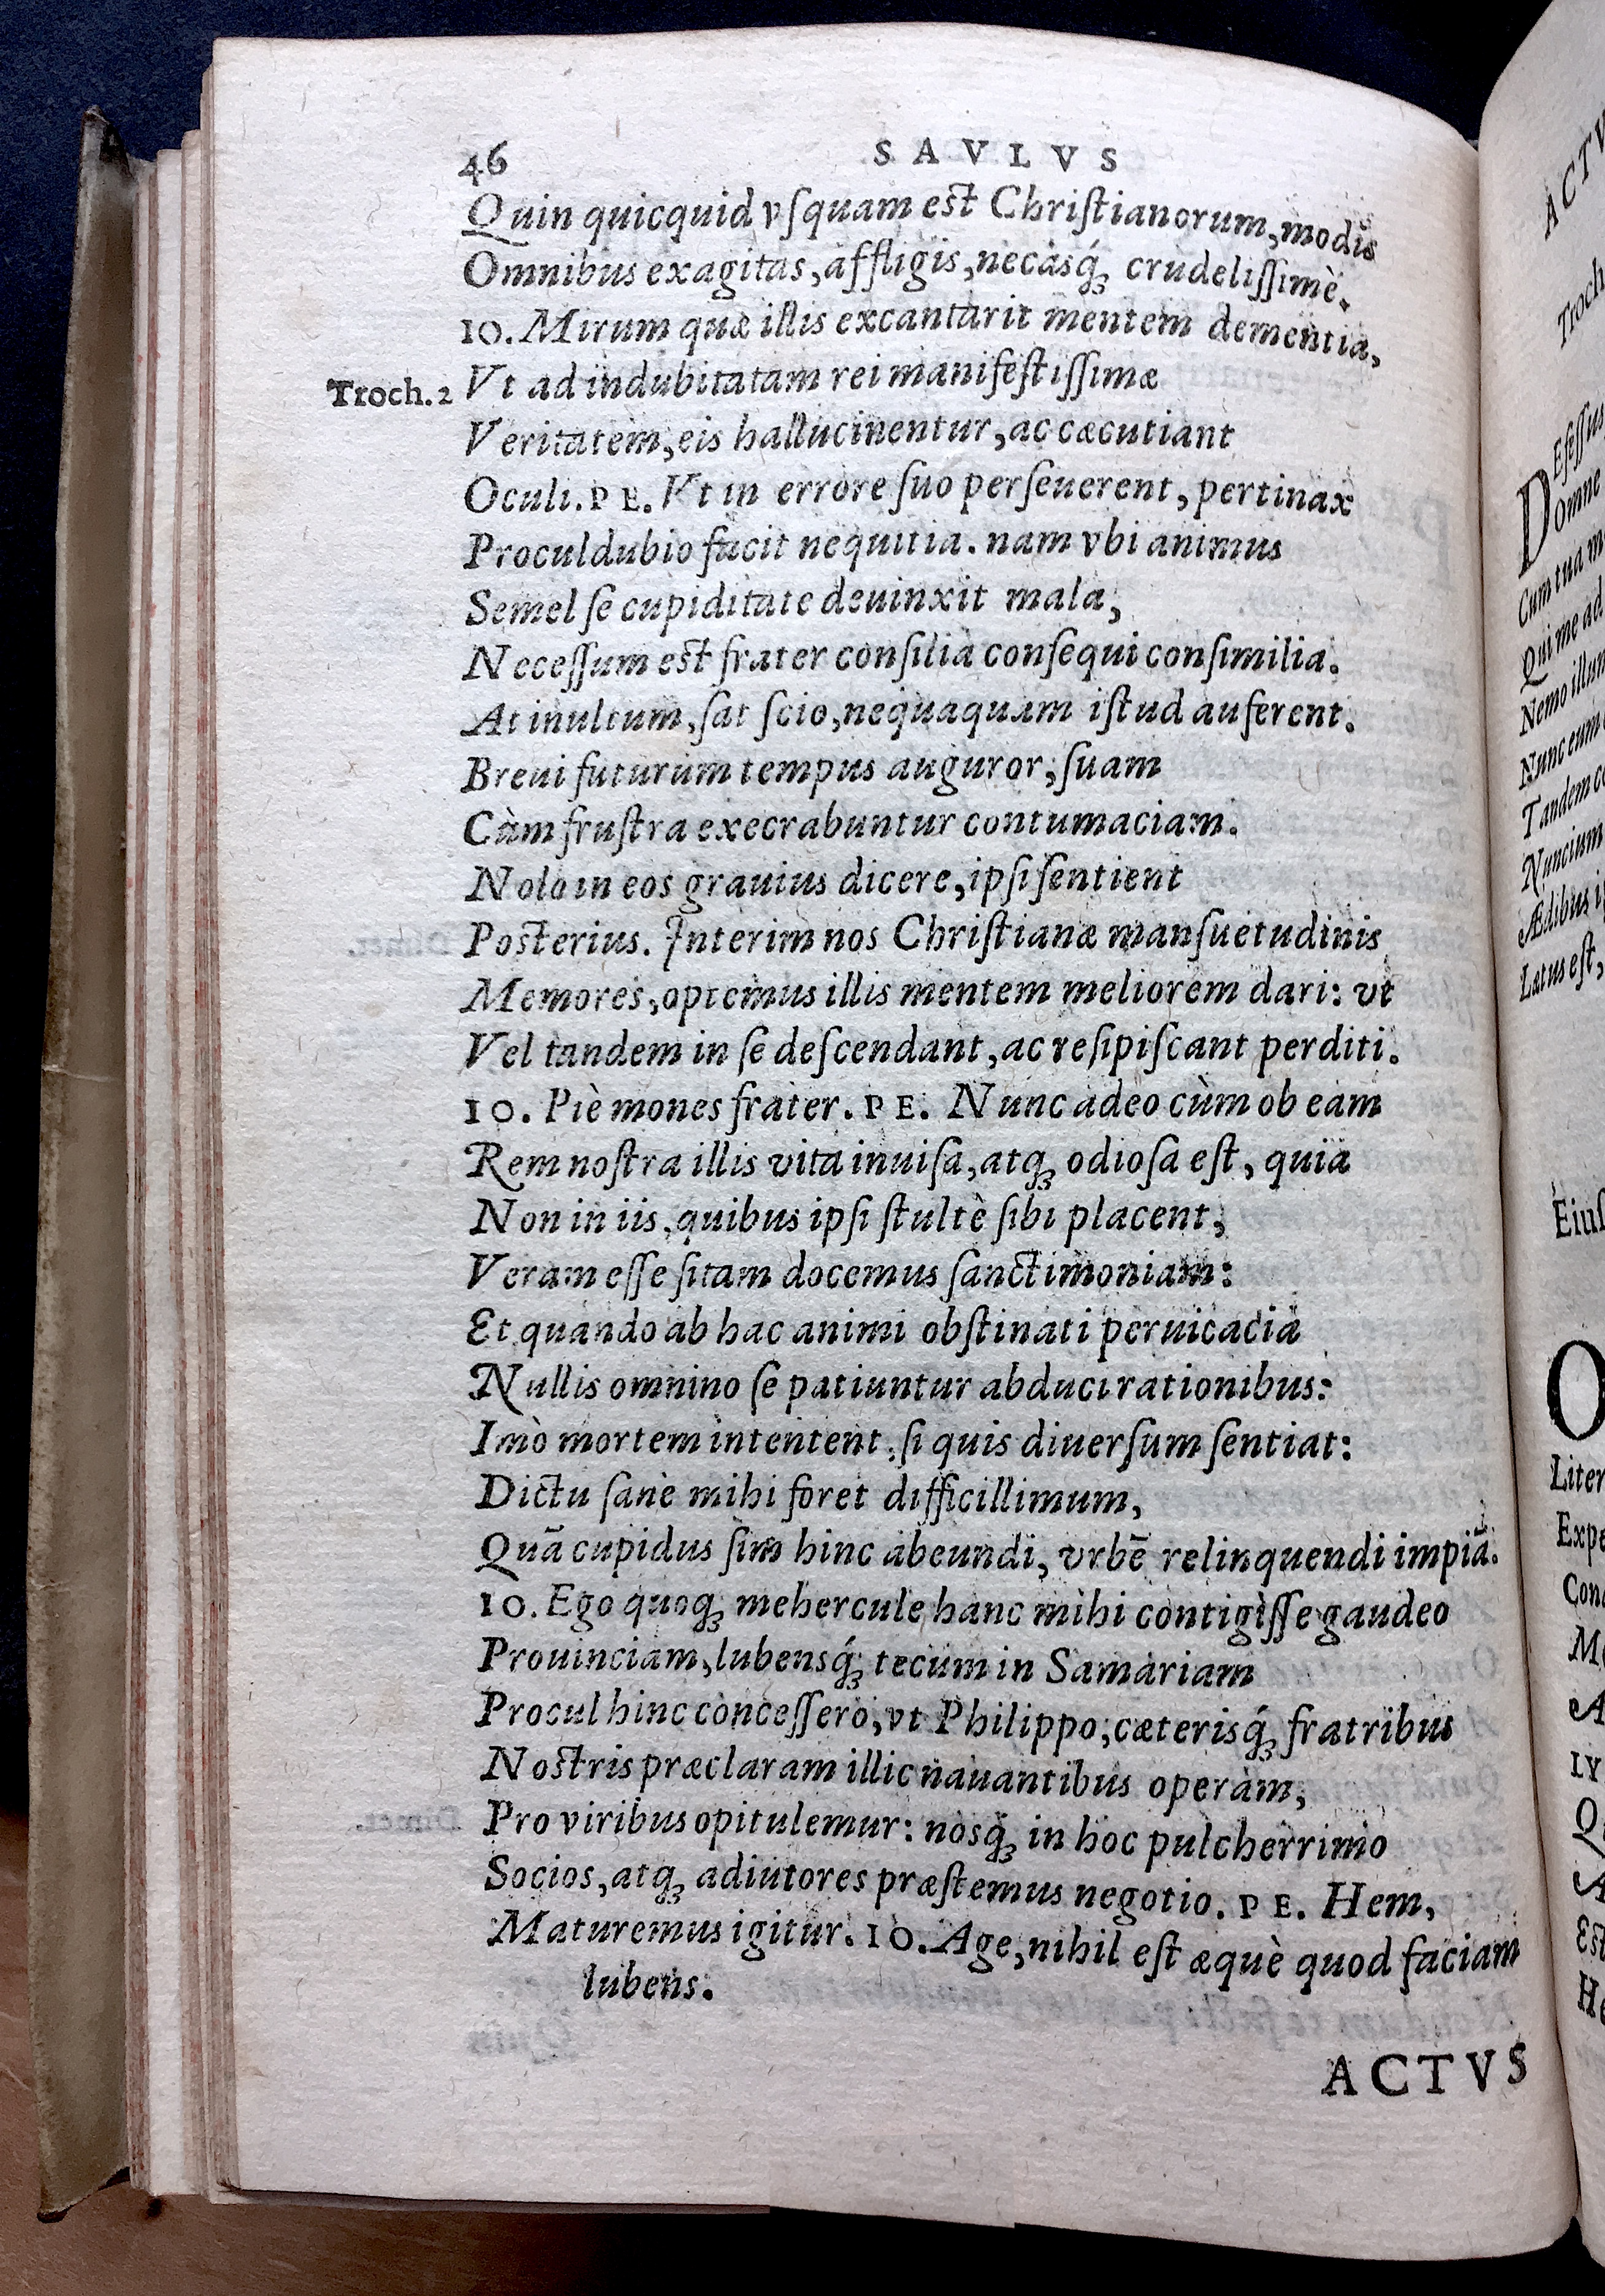 46 SAVLVS
Quin quicquid vſquam est Chriſtianorum, modis
Omnibus exagitas, affligis, necásq́ꝫ crudeliſſimè.
IO. Mirum quæ illis excantarit mentem dementia,
Troch. 2 Vt ad indubitatam rei manifeſtiſſimæ
Veritatem, eis hallucinentur, ac cæcutiant
Oculi. PE. Vt in errore ſuo perſeuerent, pertinax
Proculdubio facit nequitia. nam vbi animus
Semel ſe cupiditate deuinxit mala,
Neceſſum est frater conſilia conſequi conſimilia.
At inultum, ſat ſcio, nequaquam iſtud auferent.
Breui futurum tempus auguror, ſuam
Càm fruſtra execrabuntur contumaciam.
Nolo in eos grauius dicere, ipſi ſentient
Posterius. Interim nos Chriſtianæ manſuetudinis
Memores, optemus illis mentem meliorem dari: vt
Vel tandem in ſe deſcendant, ac reſipiſcant perditi.
IO. Piè mones frater. PE. Nunc adeo cùm ob eam
Rem noſtra illis vita inuiſa, atqꝫ odioſa eſt, quia
Non in iis, quibus ipſi ſtultè ſibi placent,
Veram eſſe ſitam docemus ſanctimoniam:
Et quando ab hac animi obſtinati peruicacia
Nullis omnino ſe patiuntur abduci rationibus:
Imò mortem intentent, ſi quis diuerſum ſentiat:
Dictu ſanè mihi foret difficillimum,
Quā cupidus ſim hinc abeundi, vrbē relinquendi impiā.
IO. Ego quoqꝫ mehercule hanc mihi contigiſſe gaudeo
Prouinciam, lubensq́ꝫ tecum in Samariam
Procul hinc conceſſero, vt Philippo, cæterisq́ꝫ fratribus
Nostris præclaram illic nauantibus operam,
Pro viribus opitulemur: nosq́ꝫ in hoc pulcherrimo
Socios, atqꝫ adiutores præſtemus negotio. PE. Hem,
Maturemus igitur. IO. Age, nihil eſt æquè quod faciam
lubens.
ACTVS